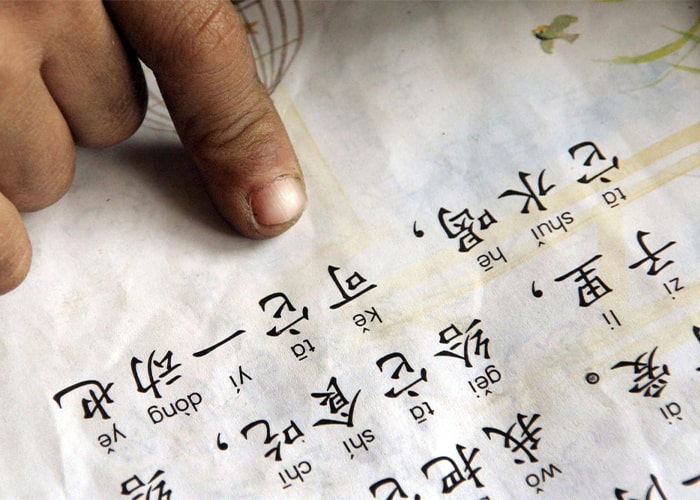 ài wǒ
爱。我把它
zi li gěi tā shí chī
子里，给它食吃，给
tā shuǐ hē kě tā yí dòng yě
它水喝，可它一动也